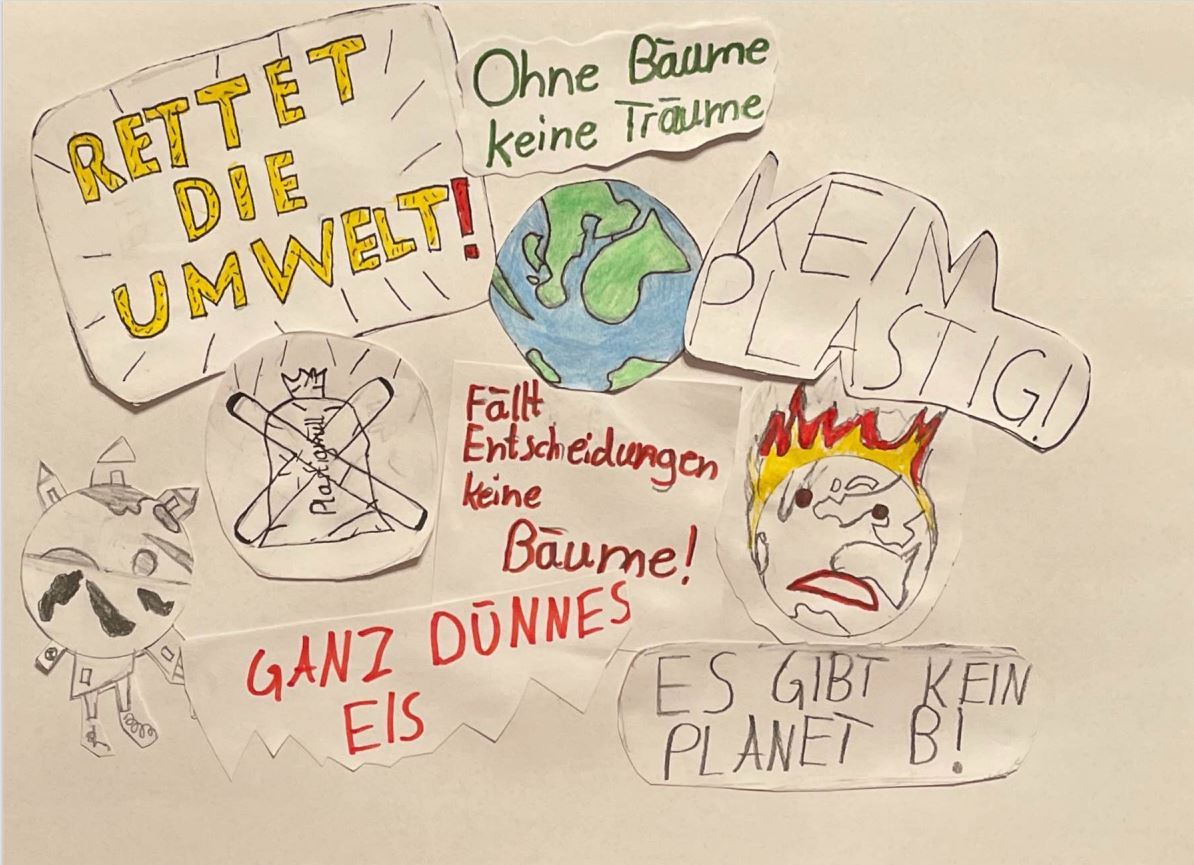 RETTET
DIE
UMWELT!
Ohne Bäume
keine Träume
KEIN
PLASTIG!
Plastigmüll
Fällt
Entscheidungen
keine
Bäume!
GANZ DÜNNES
EIS
ES GIBT KEIN
PLANET B!